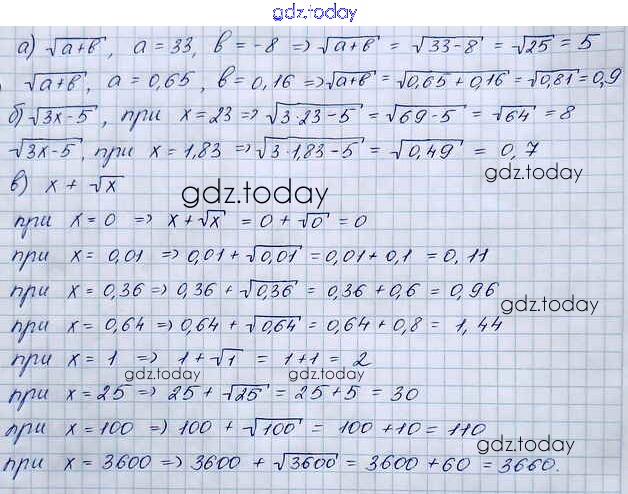 gdz.today
а) √(a+b), a = 33, b = -8 => √(a+b) = √(33-8) = √25 = 5
√(a+b), a = 0,65, b = 0,16 => √(a+b) = √(0,65 + 0,16) = √0,81 = 0,9
б) √(3x-5), при x = 23 => √(3·23-5) = √(69-5) = √64 = 8
√(3x-5), при x = 1,83 => √(3·1,83-5) = √0,49 = 0,7
gdz.today
в) x + √x
gdz.today
при x = 0 => x+√x = 0 + √0 = 0
при x = 0,01 => 0,01 + √0,01 = 0,01 + 0,1 = 0,11
при x = 0,36 => 0,36 + √0,36 = 0,36 + 0,6 = 0,96
gdz.today
при x = 0,64 => 0,64 + √0,64 = 0,64 + 0,8 = 1,44
при x = 1 => 1+√1 = 1+1 = 2
gdz.today gdz.today
при x = 25 => 25 + √25 = 25+5 = 30
при x = 100 => 100 + √100 = 100 + 10 = 110
gdz.today
при x = 3600 => 3600 + √3600 = 3600 + 60 = 3660.